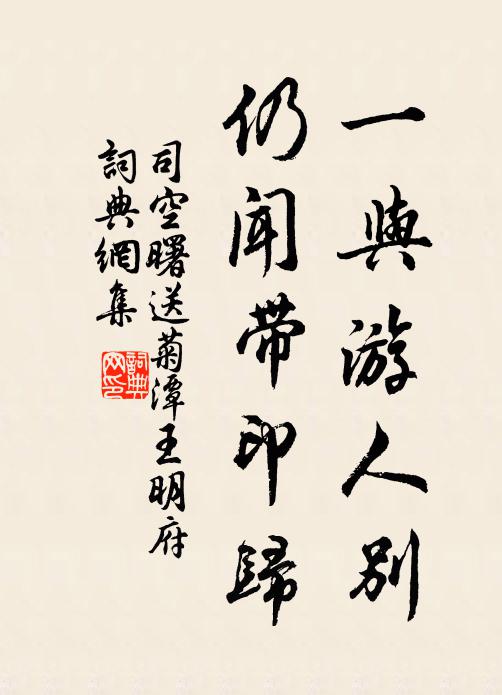 一與游人别
仍闻带印歸
司空曙送菊潭王明府
詞典網集
詞典網印